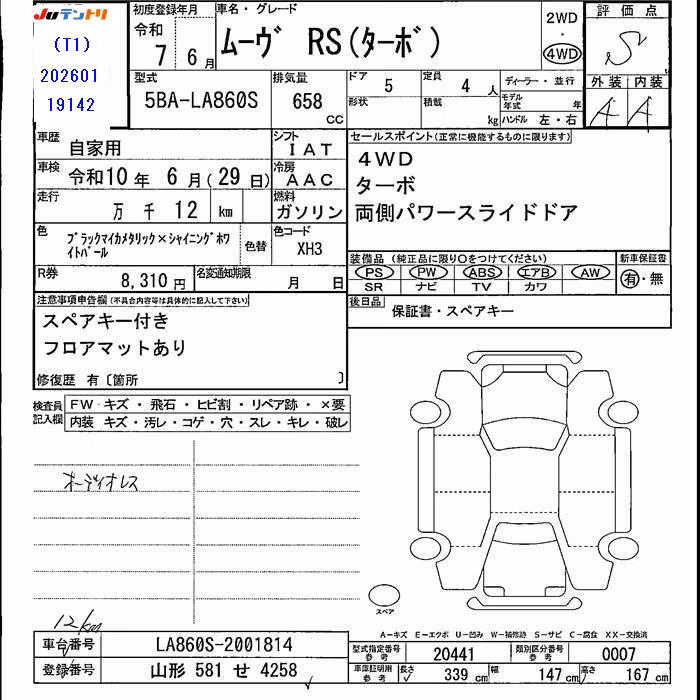 JUテントリ
(T1)
202601
19142
初度登録年月
令和 7年 6月
車名・グレード
ムーヴ RS(ターボ)
2WD
・
4WD
評価点
S
型式
5BA-LA860S
排気量
658 CC
ドア 5
形状
定員 4人
積載 kg
ディーラー・並行
モデル年式 年
ハンドル 左・右
外装 内装
A A
車歴 自家用
シフト IAT
車検 令和10年 6月(29日)
冷房 AAC
走行 万 千 12 km
燃料 ガソリン
色 ブラックマイカメタリック×シャイニングホワイトパール
色替
色コード XH3
R券 8,310円
名変通知期限 月 日
セールスポイント(正常に機能するものに限ります)
4WD
ターボ
両側パワースライドドア
装備品(純正品に限り○をつけてください)
新車保証書
PS PW ABS エアB AW
SR ナビ TV カワ
有・無
後日品 保証書・スペアキー
注意事項申告欄(不具合内容等は具体的に記入して下さい)
スペアキー付き
フロアマットあり
修復歴 有〔箇所 〕
検査員記入欄
FW キズ・飛石・ヒビ割・リペア跡・×要
内装 キズ・汚レ・コゲ・穴・スレ・キレ・破レ
オーディオレス
スペア
12km
A-キズ E-エクボ U-凹み W-補修跡 S-サビ C-腐食 XX-交換済
車台番号 LA860S-2001814
登録番号 山形 581 せ 4258
型式指定番号 参考 20441
類別区分番号 参考 0007
車庫証明用 参考 長さ 339 cm 幅 147 cm 高さ 167 cm